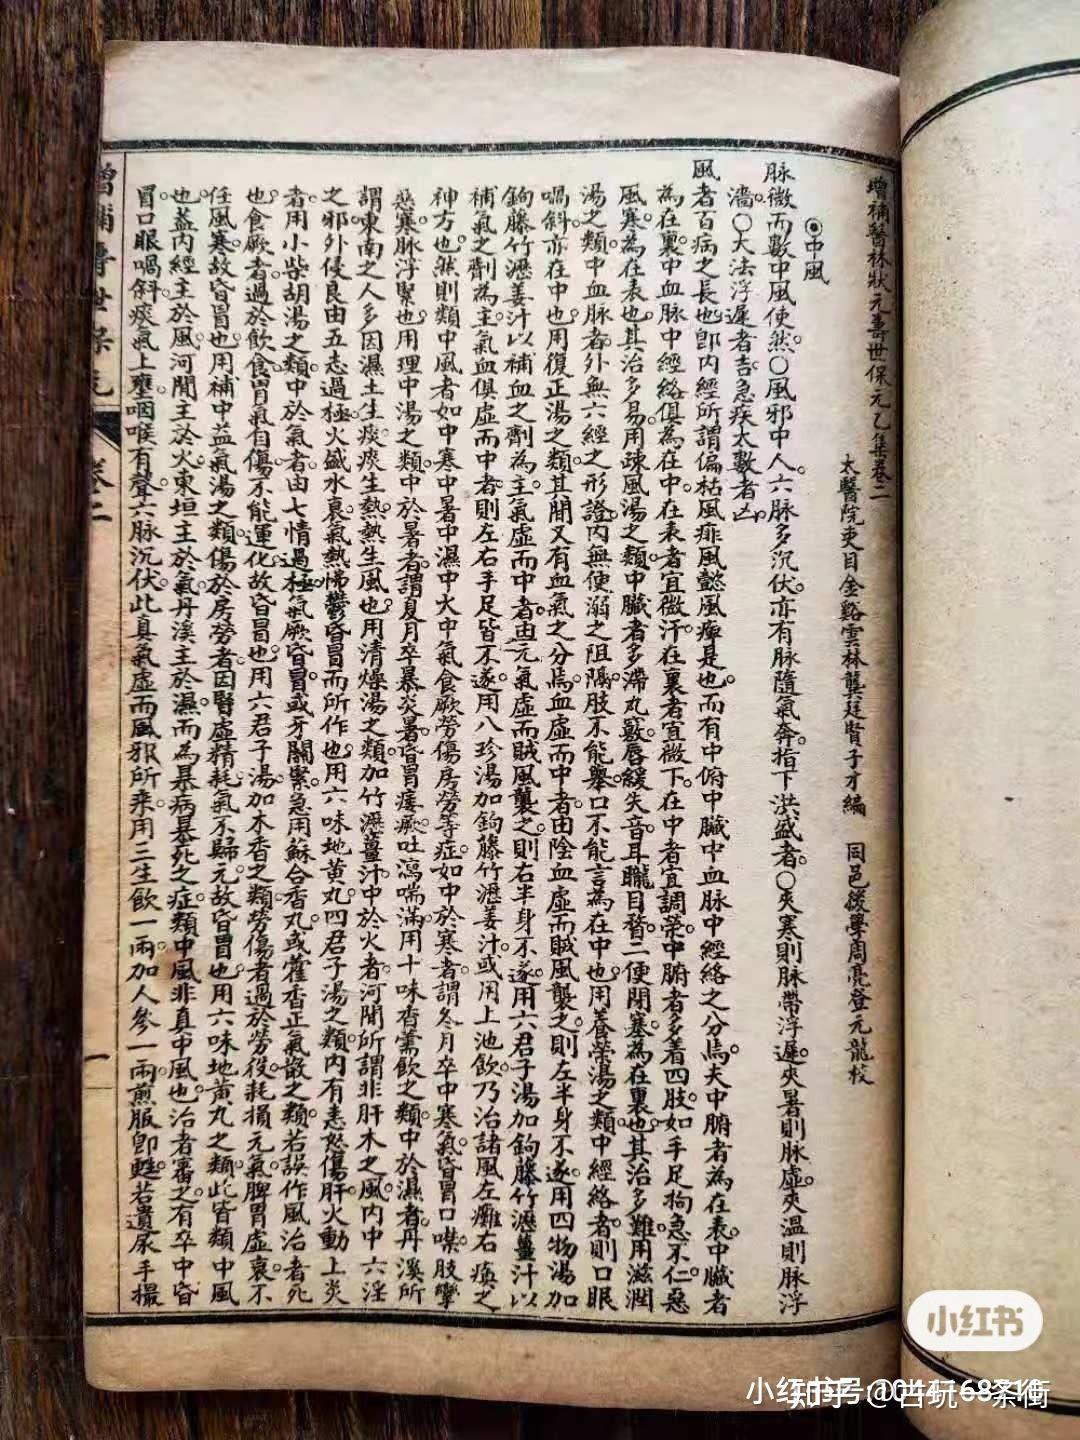 增補醫林狀元壽世保元乙集卷二
太醫院吏目金谿雲林龔廷賢子才編　同邑後學周亮登元龍校
◉中風
脉微而數中風使然○風邪中人六脉多沉伏亦有脉隨氣奔指下洪盛者○夾寒則脉帶浮遲夾暑則脉虛夾溫則脉浮
濇○大法浮遲者吉急疾太數者凶
風者百病之長也卽內經所謂偏枯風痱風懿風痺是也而有中腑中臟中血脉中經絡之分焉夫中腑者為在表中臟者
為在裏中血脉中經絡俱為在中在表者宜微汗在裏者宜微下在中者宜調榮中腑者多着四肢如手足拘急不仁惡
風寒為在表也其治多易用疎風湯之類中臟者多滯九竅唇緩失音耳聾目瞀二便閉塞為在裏也其治多難用滋潤
湯之類中血脉者外無六經之形證內無便溺之阻隔肢不能舉口不能言為在中也用養榮湯之類中經絡者則口眼
喎斜亦在中也用復正湯之類其間又有血氣之分焉血虛而中者由陰血虛而賊風襲之則左半身不遂用四物湯加
鉤藤竹瀝姜汁以補血之劑為主氣虛而中者由元氣虛而賊風襲之則右半身不遂用六君子湯加鉤藤竹瀝薑汁以
補氣之劑為主氣血俱虛而中者則左右手足皆不遂用八珍湯加鉤藤竹瀝姜汁或用上池飲乃治諸風左癱右瘓之
神方也然則類中風者如中寒中暑中濕中火中氣食厥勞傷房勞等症如中於寒者謂冬月卒中寒氣昏冒口噤肢攣
惡寒脉浮緊也用理中湯之類中於暑者謂夏月卒暴炎暑昏冒痿厥吐瀉喘滿用十味香薷飲之類中於濕者丹溪所
謂東南之人多因濕土生痰痰生熱熱生風也用清燥湯之類加竹瀝薑汁中於火者河間所謂非肝木之風內中六淫
之邪外侵良由五志過極火盛水衰氣熱怫鬱昏冒而所作也用六味地黃丸四君子湯之類內有恚怒傷肝火動上炎
者用小柴胡湯之類中於氣者由七情過極氣厥昏冒或牙關緊急用蘇合香丸或藿香正氣散之類若誤作風治者死
也食厥者過於飲食胃氣自傷不能運化故昏冒也用六君子湯加木香之類勞傷者過於勞役耗損元氣脾胃虛衰不
任風寒故昏冒也用補中益氣湯之類傷於房勞者因腎虛精耗氣不歸元故昏冒也用六味地黃丸之類此皆類中風
也蓋內經主於風河間主於火東垣主於氣丹溪主於濕而為暴病暴死之症類中風非真中風也治者審之有卒中昏
冒口眼喎斜痰氣上壅咽喉有聲六脉沉伏此真氣虛而風邪所乘用三生飲一兩加人參一兩煎服卽甦若遺尿手撮
增補壽世保元　卷二　一
小红书
小红书号
知乎 @古玩一条街